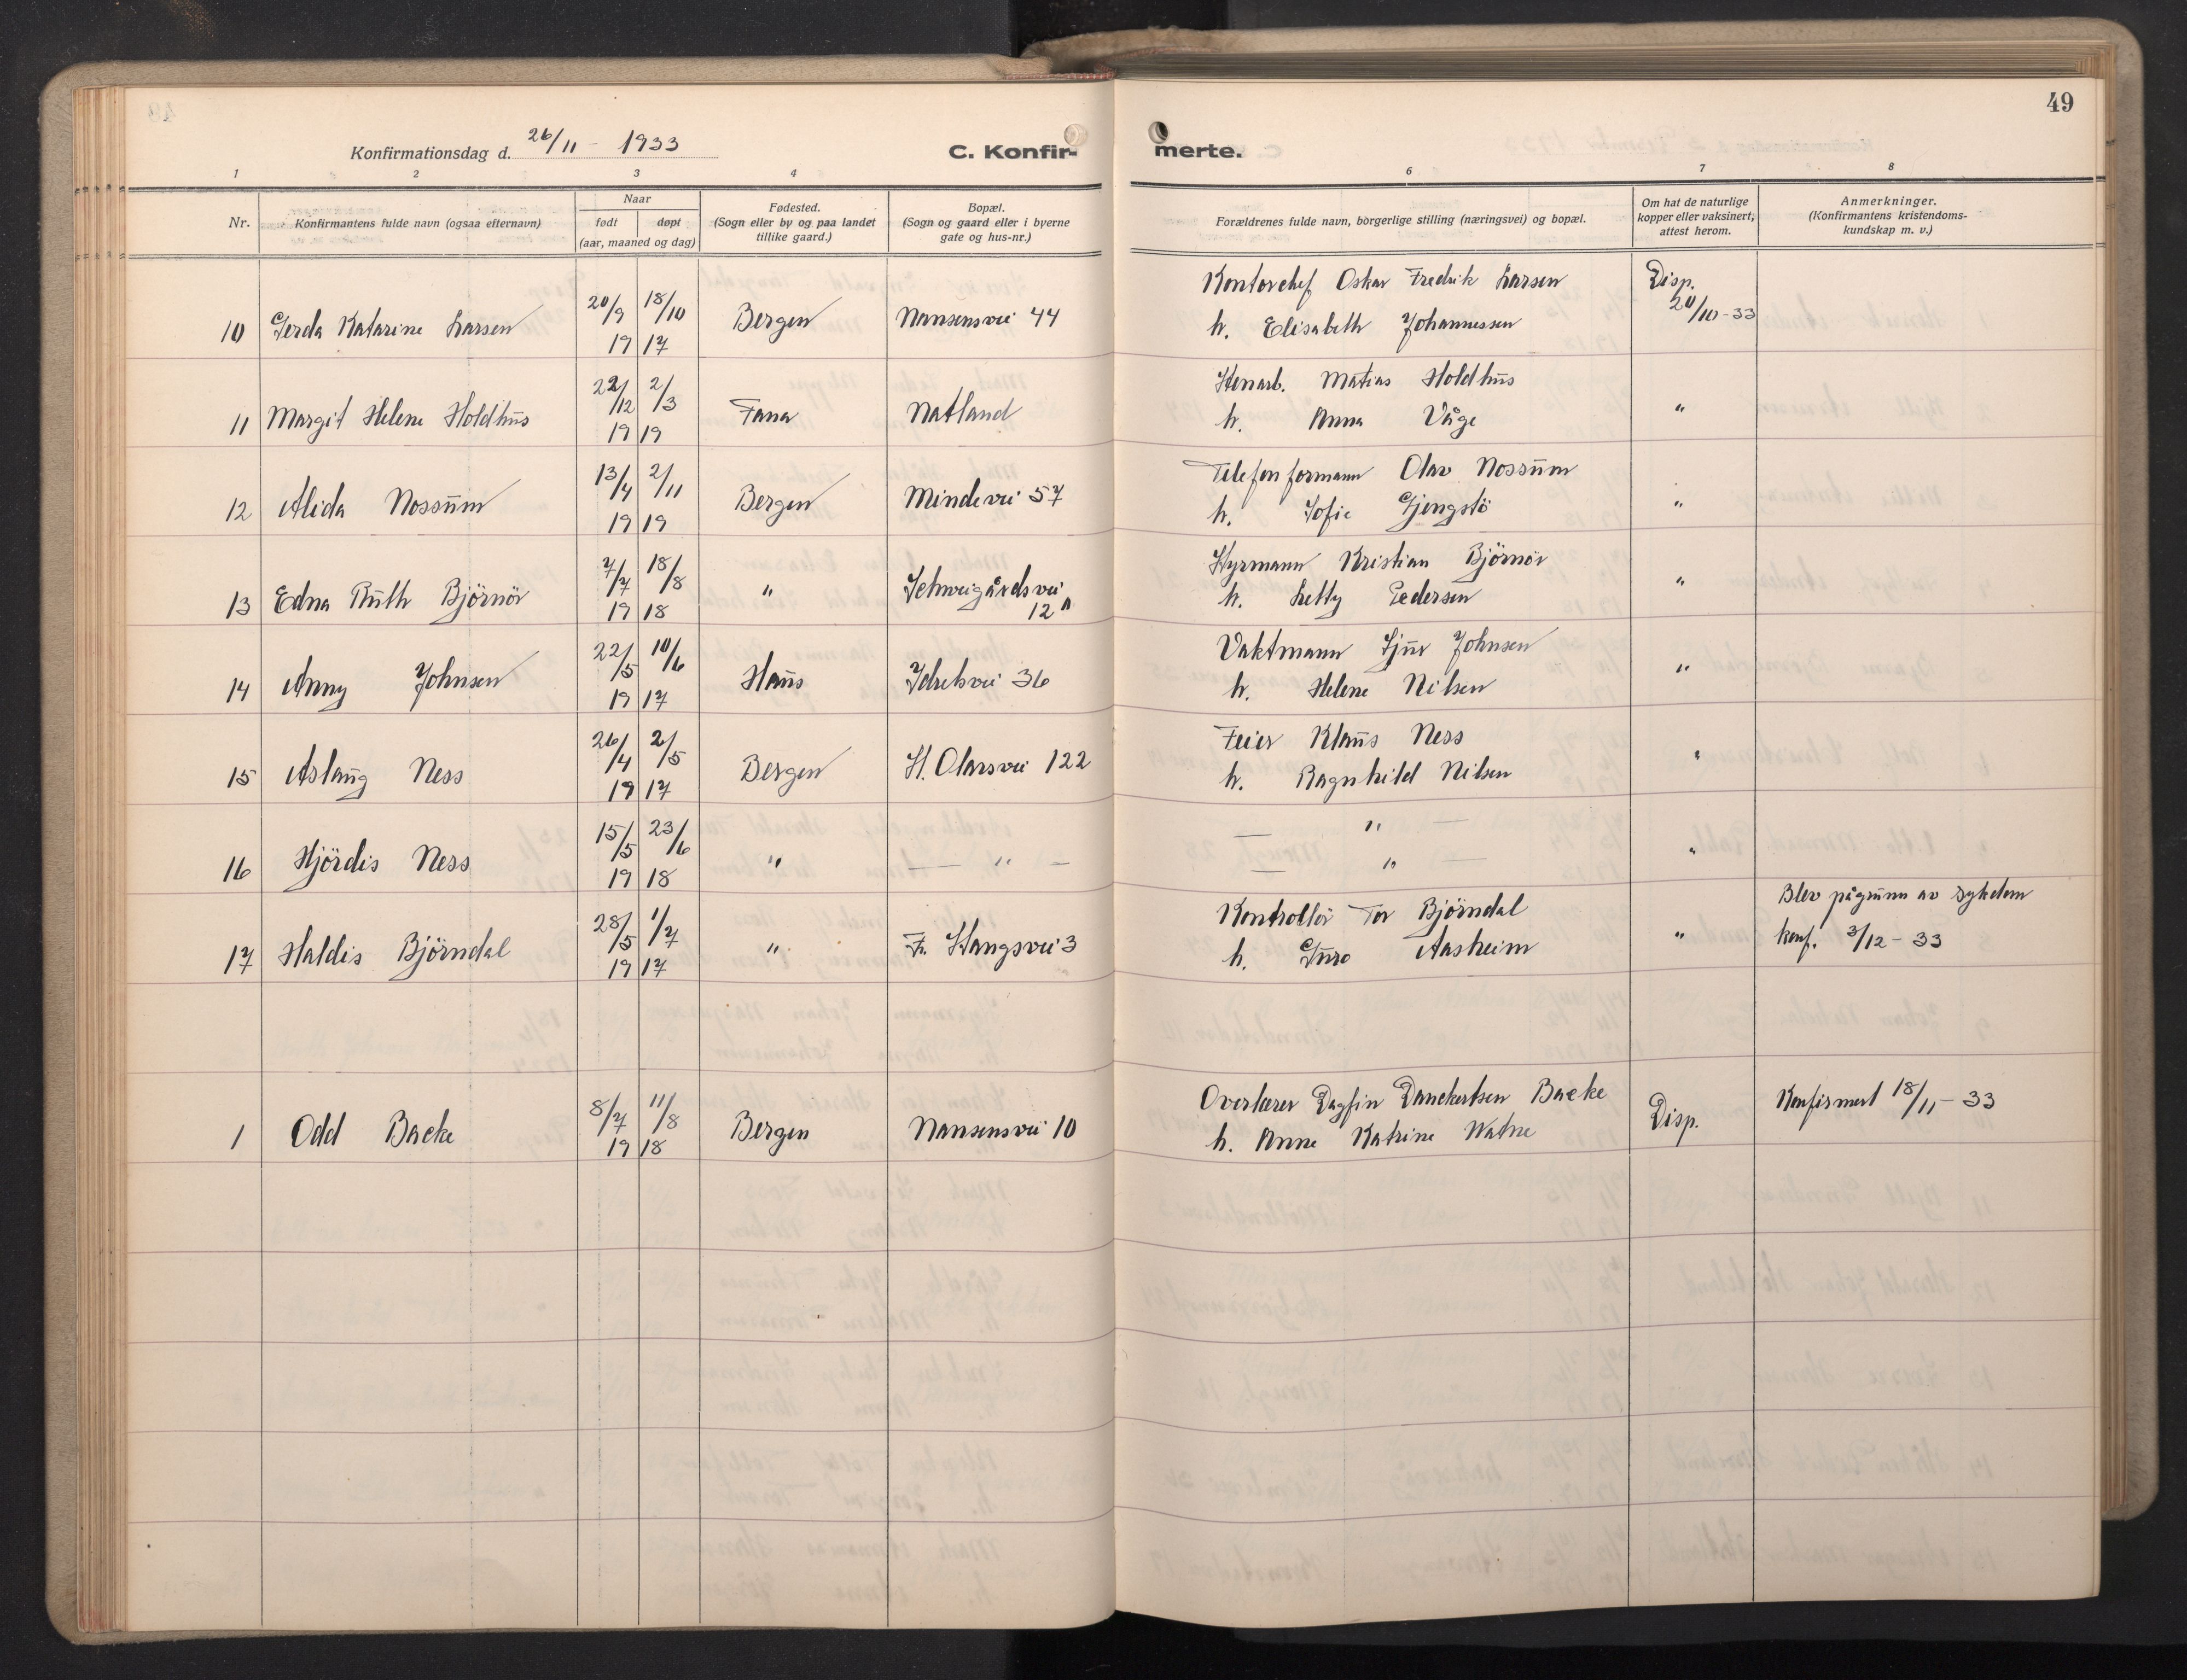 49
Konfirmationsdag d. 26/11 - 1933
C. Konfirmerte.
1 2 3 4 6 7 8
Nr.
Konfirmantens fulde navn (ogsaa efternavn)
Naar
født døpt
(aar, maaned og dag)
Fødested.
(Sogn eller by og paa landet
tillike gaard.)
Bopæl.
(Sogn og gaard eller i byerne
gate og hus-nr.)
Forældrenes fulde navn, borgerlige stilling (næringsvei) og bopæl.
Om hat de naturlige
kopper eller vaksinert,
attest herom.
Anmerkninger.
(Konfirmantens kristendoms-
kundskap m. v.)
10 Gerda Katarine Larsen 20/9 1917 18/10 Bergen Nansensvei 44 Kontorchef Oskar Fredrik Larsen Disp.
h. Elisabeth Johannessen 20/10-33
11 Margit Helene Holdhus 22/12 19 2/3 19 Fana Natland Stenarb. Matias Holdhus "
h. Anna Våge
12 Alida Nossum 13/4 19 2/11 19 Bergen Mindevei 57 Telefonformann Olav Nossum "
h. Sofie Gjengstö
13 Edna Ruth Björnör 7/7 19 18/8 18 " Schweigårdsvei 12A Styrmann Kristian Björnör "
h. Letty Pedersen
14 Anny Johnsen 22/5 19 10/6 17 Haus Idretsvei 36 Vaktmann Sjur Johnsen "
h. Helene Nilsen
15 Aslaug Ness 26/4 19 2/5 17 Bergen St. Olavsvei 122 Feier Klaus Ness "
h. Ragnhild Nilsen
16 Hjördis Ness 15/5 19 23/6 18 " — " — — " — "
— " —
17 Haldis Björndal 28/5 19 1/7 17 " Fr. Stangsvei 3 Kontrollör Tor Björndal " Blev pågrunn av sykdom
h. Guro Aasheim konf. 3/12 - 33
1 Odd Backe 8/7 19 11/8 18 Bergen Nansensvei 10 Overlærer Dagfin Danckertsen Backe Disp. Konfirmert 18/11 - 33
h. Anne Katrine Watne